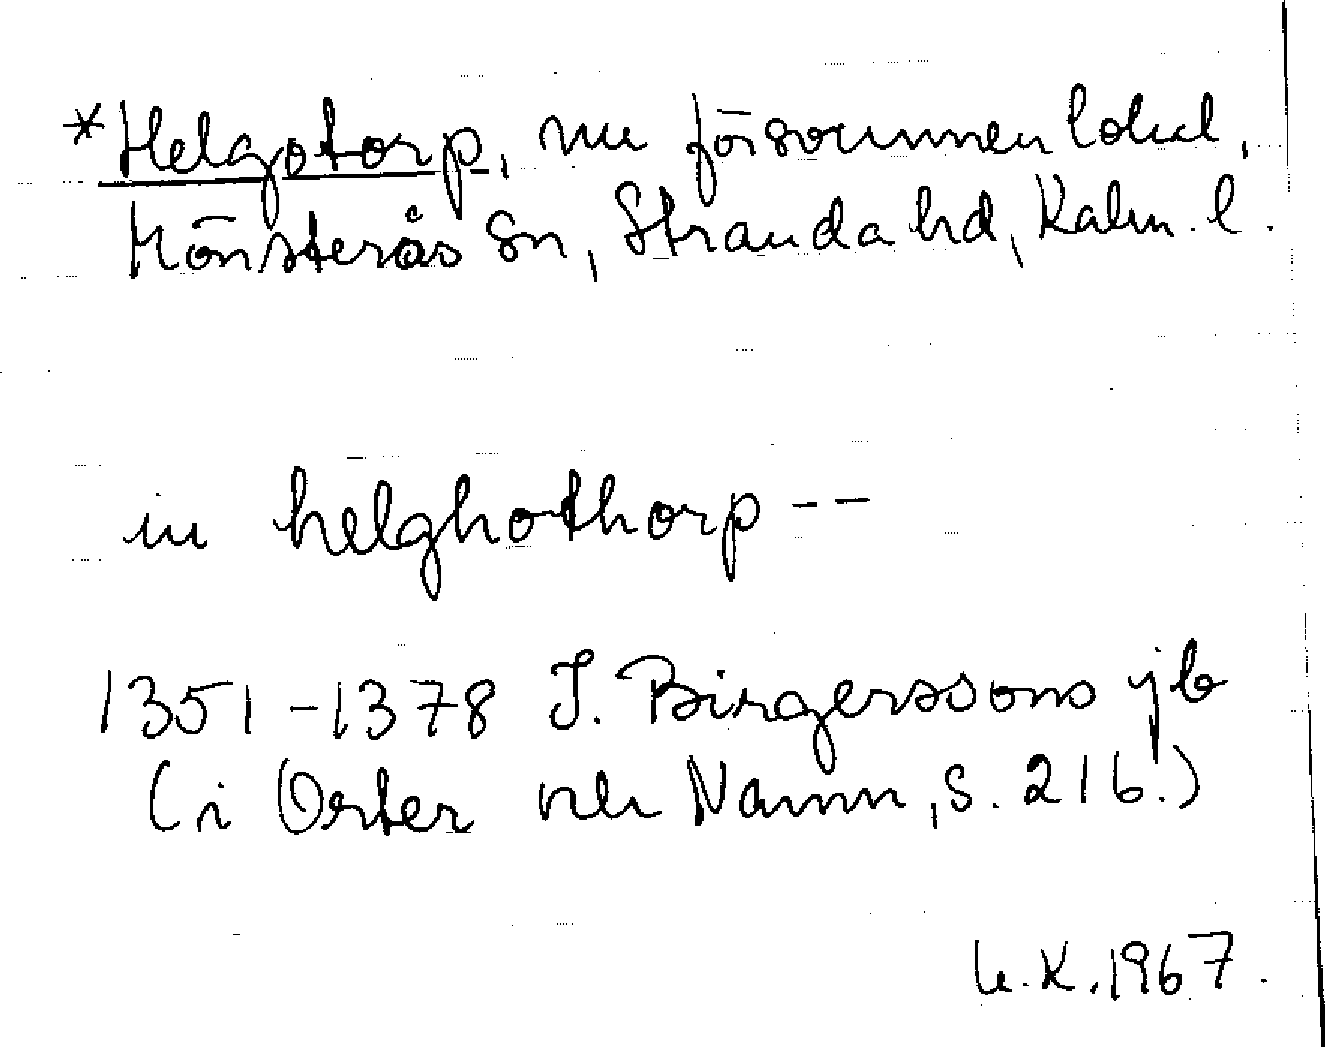 *Helgotorp, nu försvunnen lokal,
Mönsterås sn, Stranda hd, Kalm. l.
in helghothorp --
1351-1378 J. Birgerssons jb
(i Orter och Namn, s. 216.)
U.K. 1967.